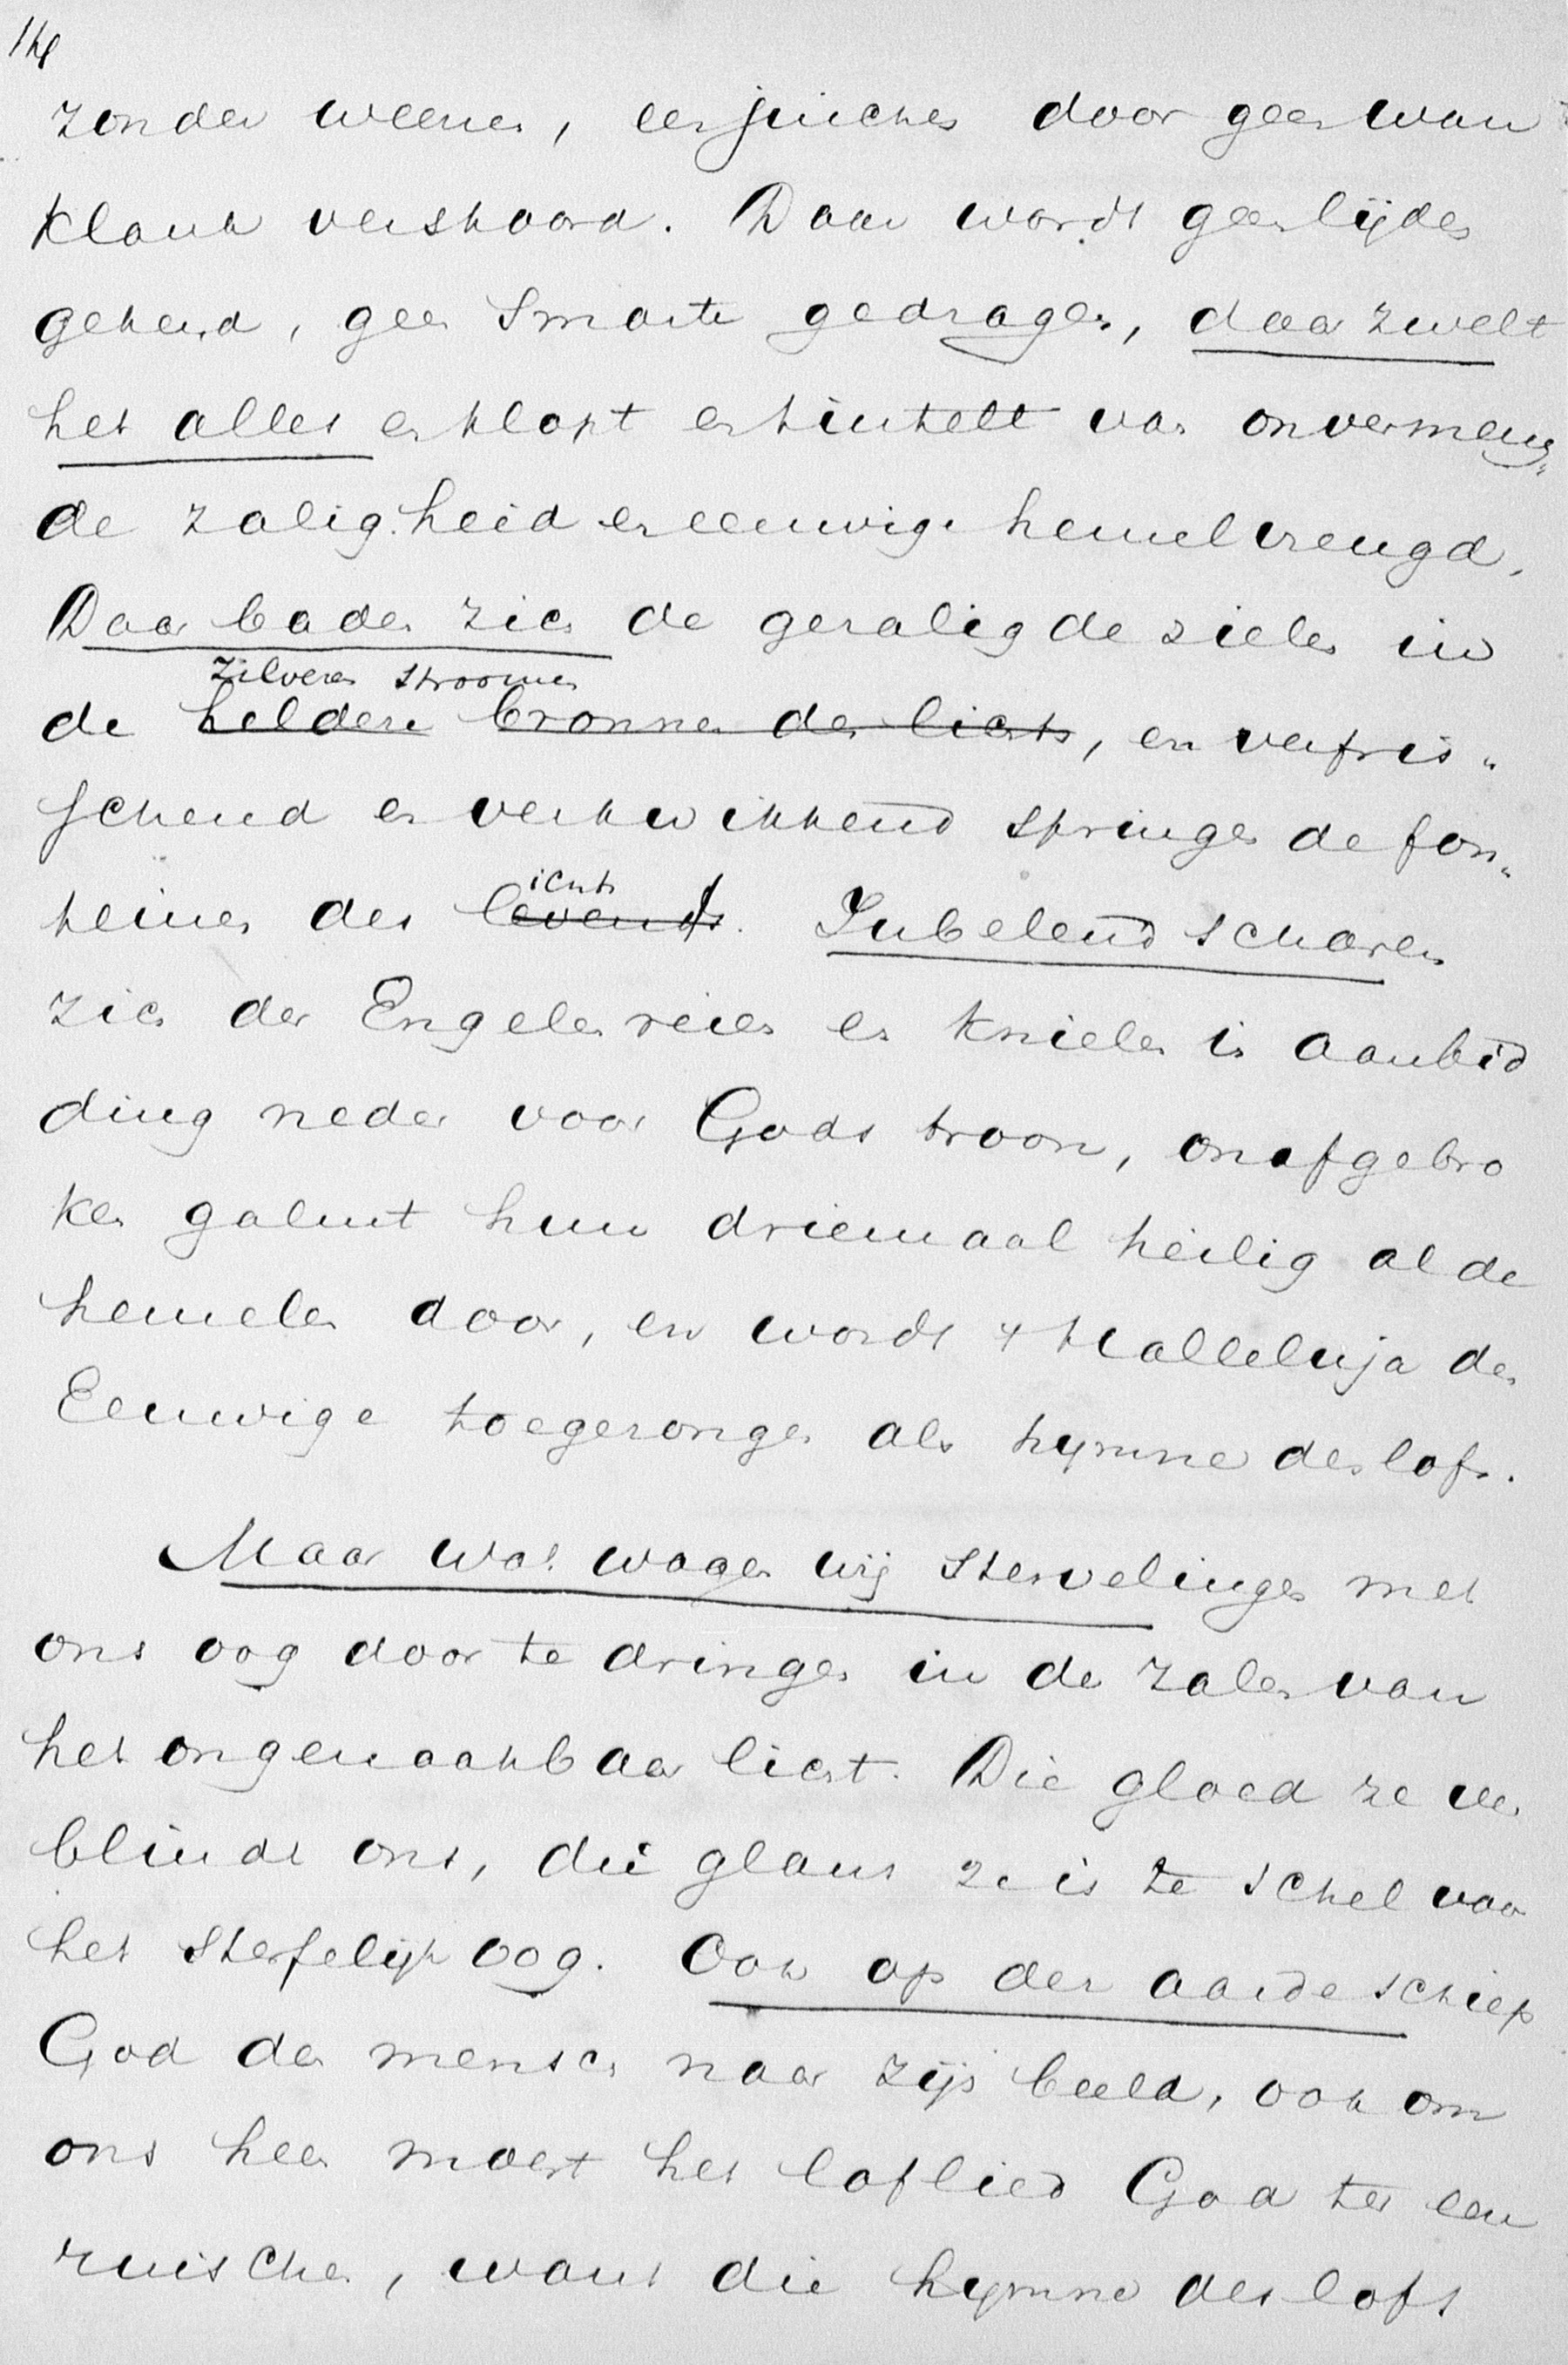 14
zonder weenen, een juichen door geen wan
klank verstoord. Daar wordt geen lijden
gekend, geen smarte gedragen, daar zwelt
het alles en klopt en tintelt van onvermeng„
de zaligheid en eeuwige hemelvreugd.
Daar baden zich de gezaligde zielen in
zilveren stroomen
de heldere bronnen des lichts, en verfris„
schend en verkwikkend springen de fon„
ichts
teinen des levens. Jubelend scharen
zich der Engelen reien en knielen in aanbid
ding neder voor Gods troon, onafgebro
ken galmt hun driemaal heilig al de
hemelen door, en wordt 't Halleluja den
Eeuwige toegezongen als hymne des lofs.
Maar wat wagen wij stervelingen met
ons oog door te dringen in de zalen van
het ongenaakbaar licht. Die gloed ze ver
blindt ons, die glans ze is te schel voor
het sterfelijk oog. Ook op der aarde schiep
God den mensch naar zijn beeld, ook om
ons heen moest het loflied God ter eer
ruischen, want die hymne des lofs